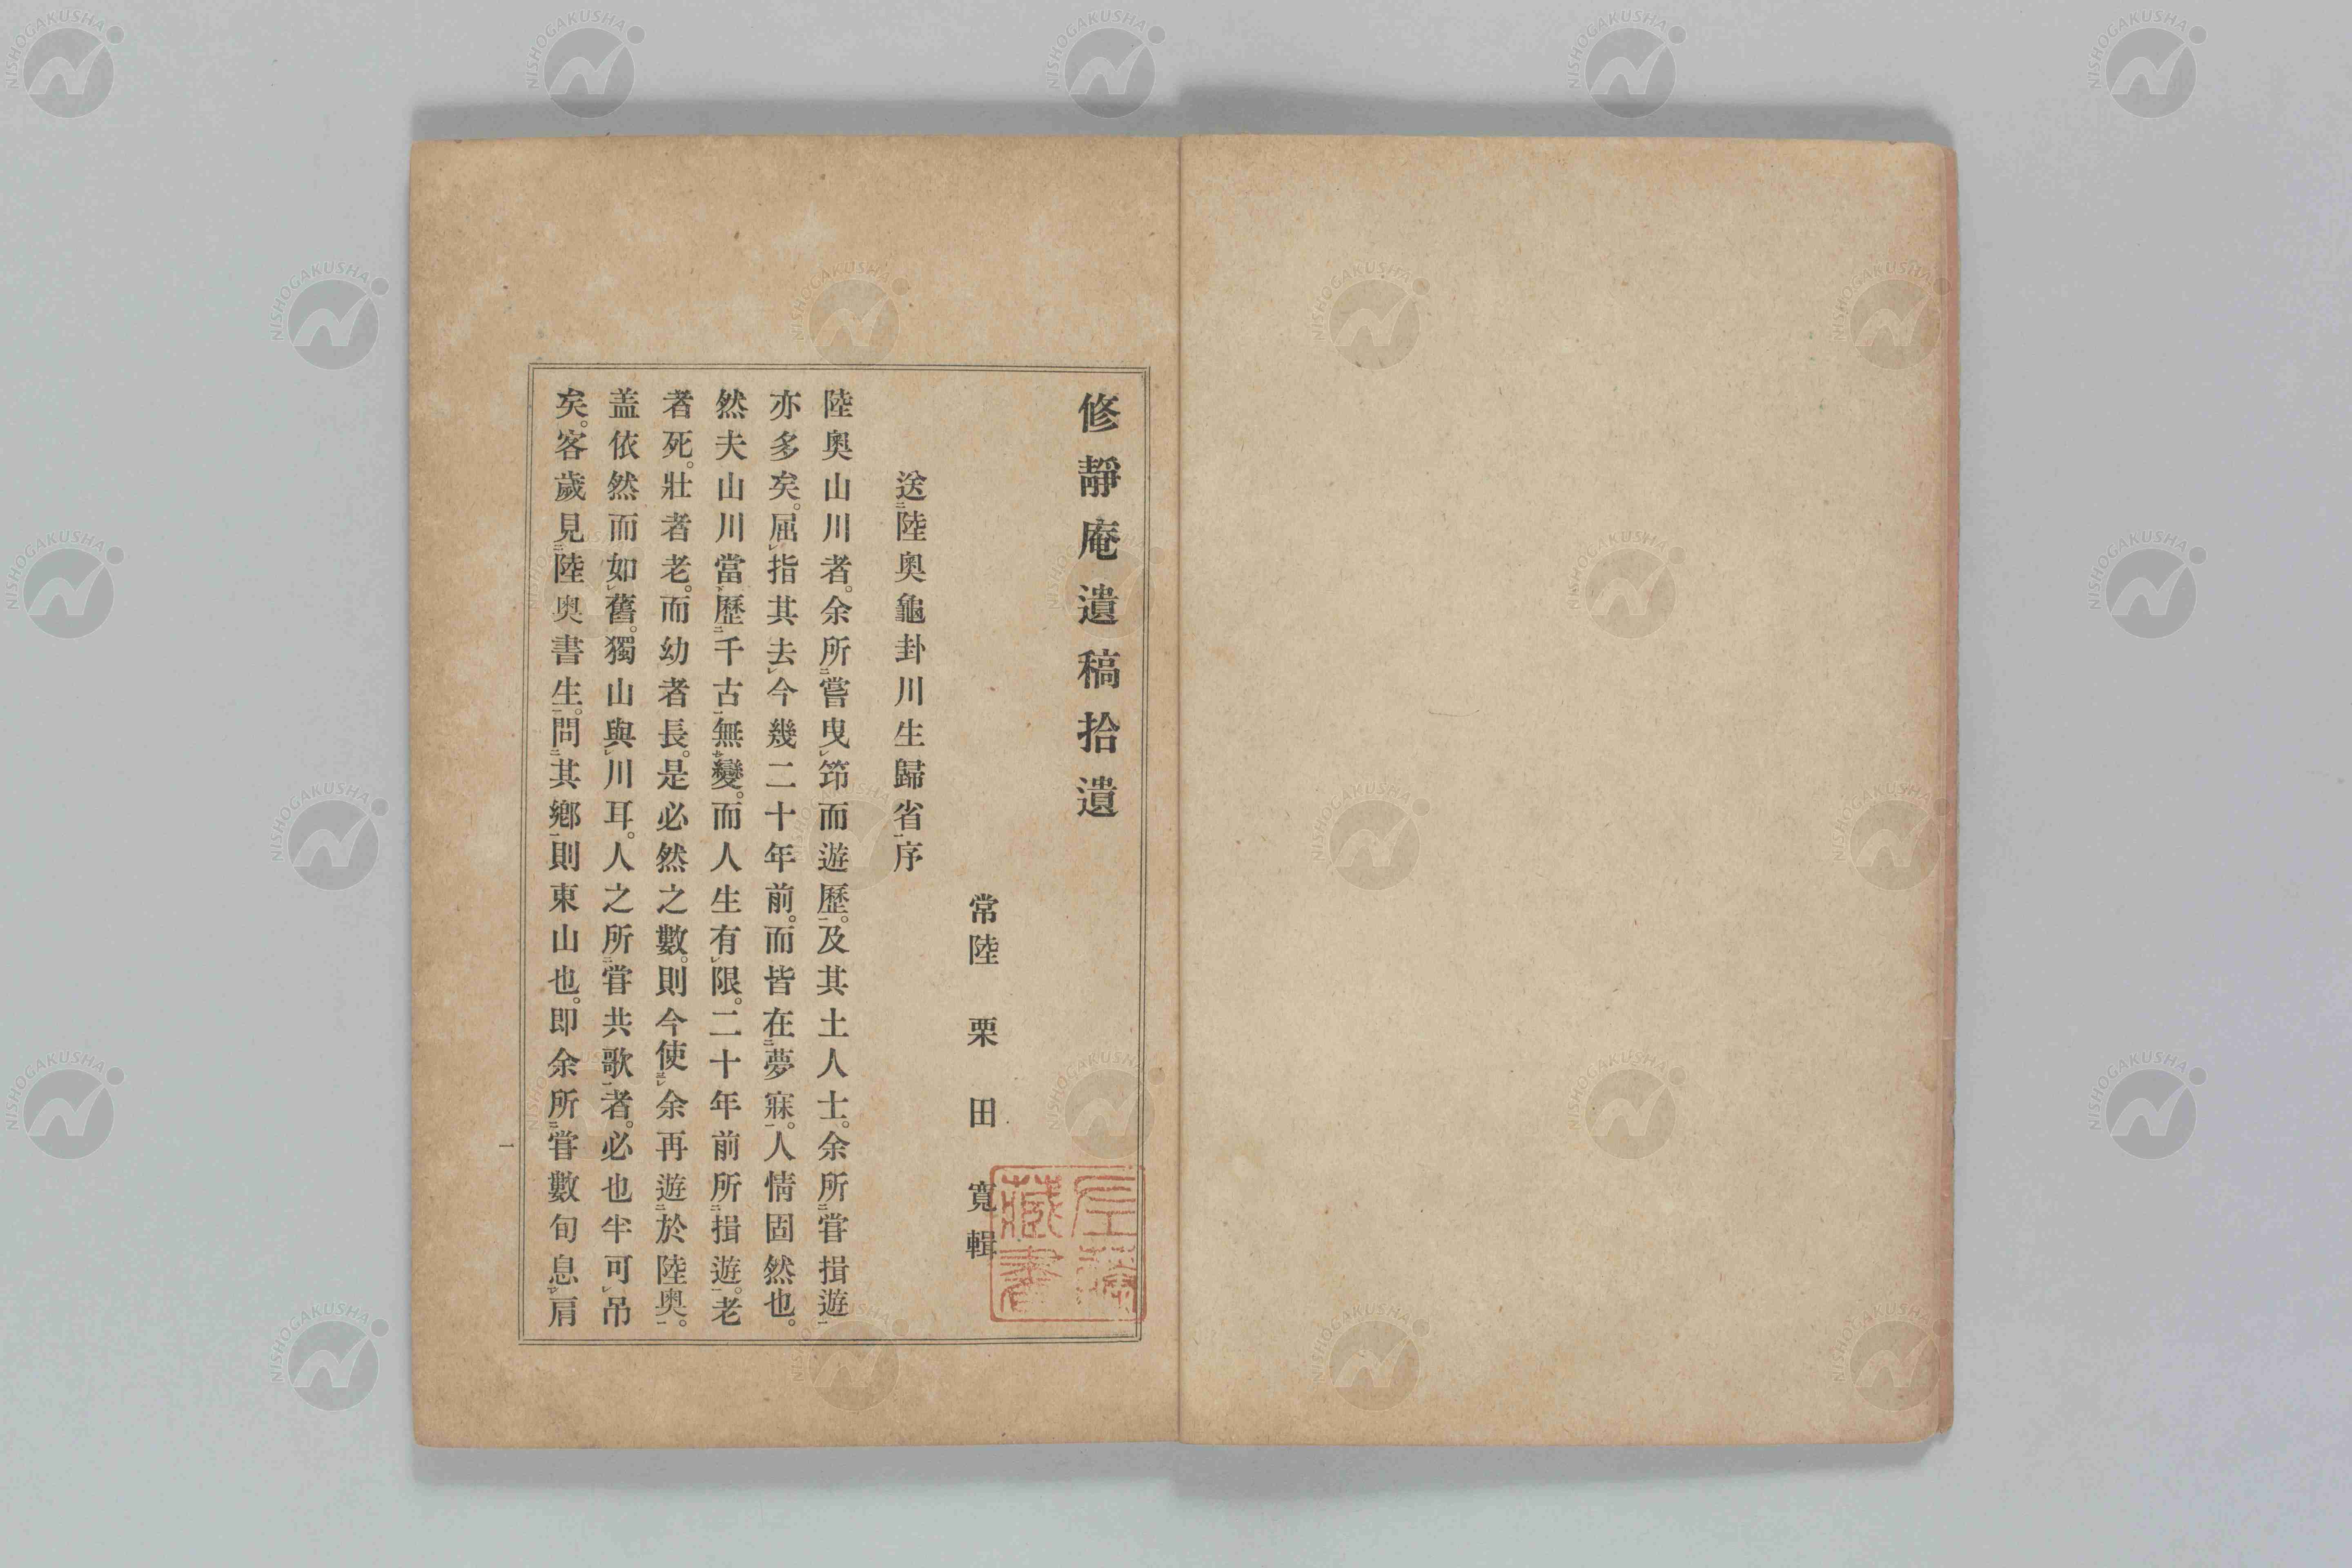 修靜庵遺稿拾遺
常陸 栗田寬輯
送㆓陸奥龜卦川生歸省㆒序
陸奥山川者。余所㆘嘗曳㆑筇而遊歷㆖。及其土人士。余所㆓嘗揖遊㆒
亦多矣。屈㆑指其去㆑今幾二十年前。而皆在㆓夢寐㆒。人情固然也。
然夫山川當㆘歷㆓千古㆒無㆖㆑變。而人生有㆑限。二十年前所㆓揖遊㆒。老
者死。壯者老。而幼者長。是必然之數。則今使㆔㆑余再遊㆓於陸奥㆒。
盖依然而如㆑舊。獨山與㆑川耳。人之所㆓嘗共歌㆒者。必也半可㆑吊
矣。客歲見㆓陸奥書生㆒。問㆓其鄕㆒則東山也。即余所㆘嘗數旬息㆑肩
一
藏書
NISHOGAKUSHA